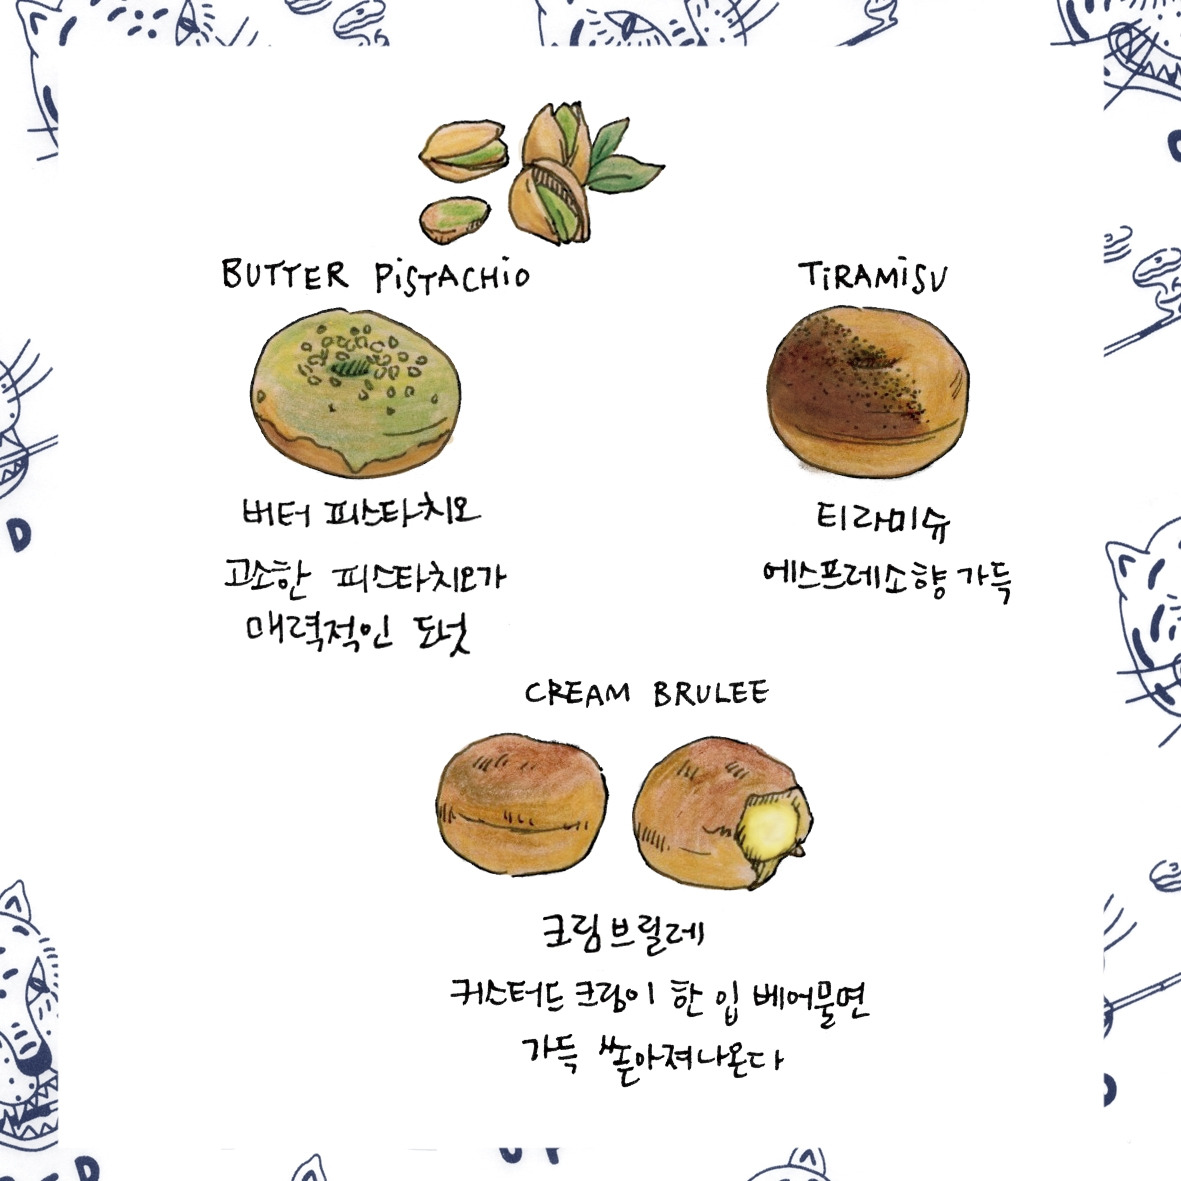 BUTTER PiSTACHiO
버터 피스타치오
고소한 피스타치오가
매력적인 도넛
TiRAMiSU
티라미슈
에스프레소향 가득
CREAM BRULEE
크림브륄레
커스터드 크림이 한 입 베어물면
가득 쏟아져나온다
D
D
D